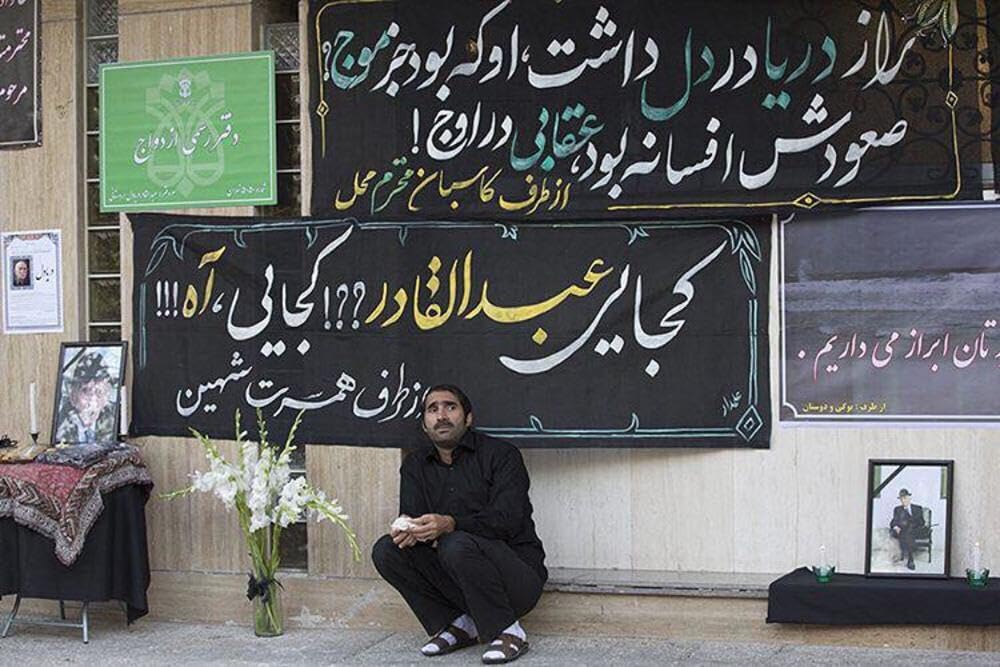 راز دریا در دل داشت، او که بود جز موج؟
صعودش افسانه بود، عقابی در اوج!
از طرف کاسبان محترم محل
دفتر رسمی ازدواج
کجایی عبدالقادر؟؟؟! کجایی، آه!!!
از طرف همسرت شهین
تان ابراز می داریم.
از طرف: بوکی و دوستان
دریادل